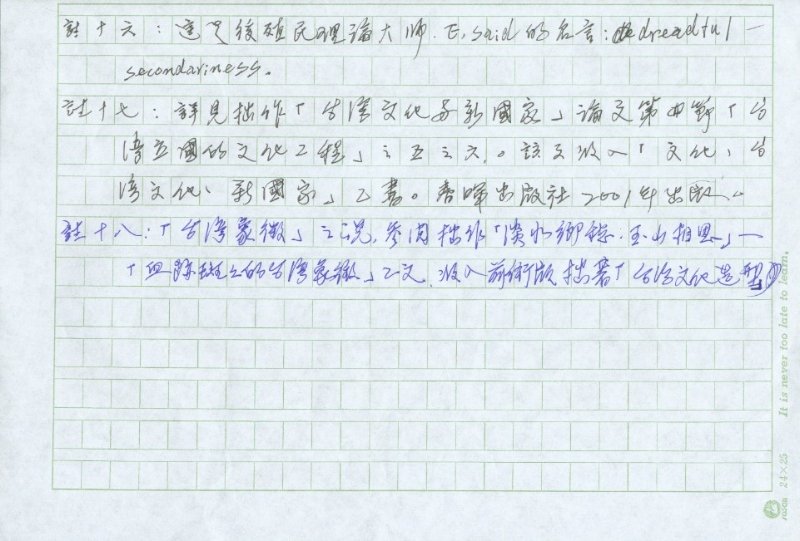 註十六：這是後殖民理論大師．E. Said 的名言：dreadful
secondariness。
註十七：詳見拙作「台灣文化與新國家」論文第四節「台
灣立國的文化工程」之五之六。該文收入「文化、台
灣文化、新國家」乙書。春暉出版社 2001年出版。
註十八：「台灣象徵」之說，參閱拙作「淡水鄉愁．玉山相思」—
「血跡斑斑的台灣象徵」乙文，收入前衛版拙著「台灣文化造型」
It is never too late to learn.
24×25